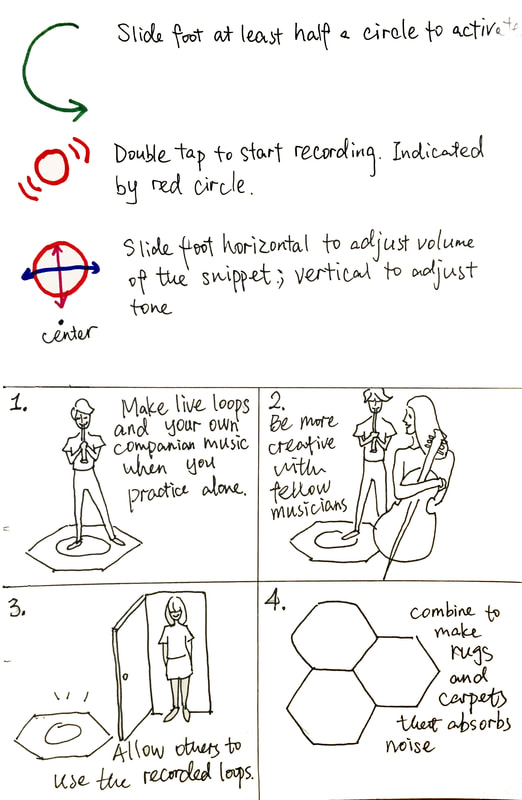 Slide foot at least half a circle to activate
Double tap to start recording. Indicated
by red circle.
Slide foot horizontal to adjust volume
of the snippet; vertical to adjust
tone
center
1.
Make live loops
and your own
companion music
when you
practice alone.
2.
Be more
creative
with
fellow
musicians
3.
Allow others to
use the recorded loops.
4.
combine to
make
rugs
and
carpets
that absorbs
noise